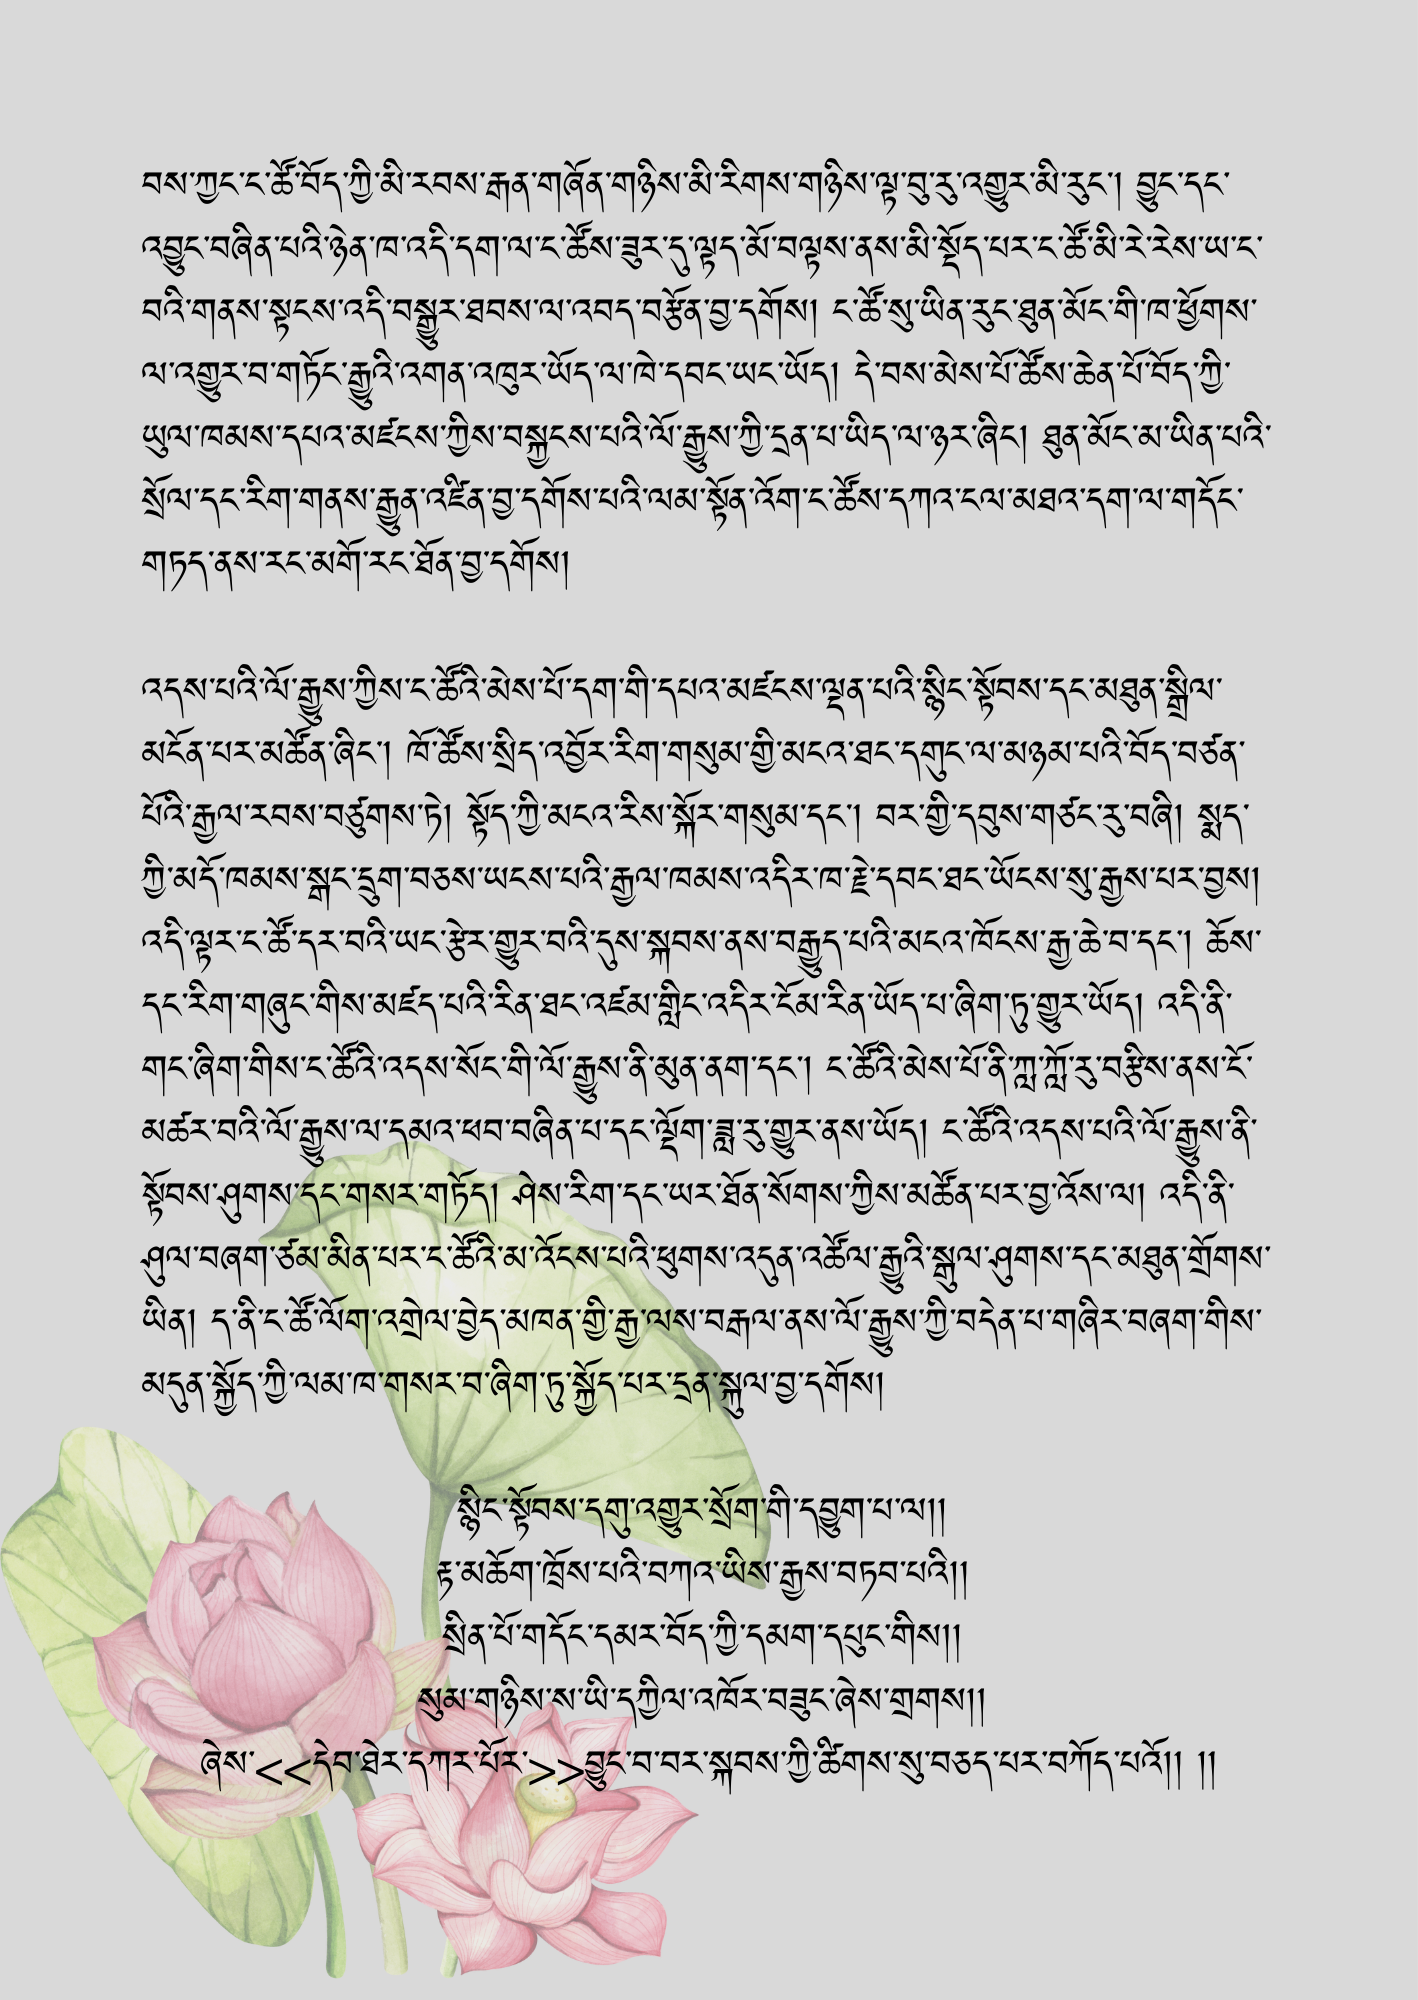 བས་ཀྱང་ང་ཚོ་བོད་ཀྱི་མི་རབས་རྒན་གཞོན་གཉིས་མི་རིགས་གཉིས་ལྟ་བུ་རུ་འགྱུར་མི་རུང་། བྱུང་དང་
འབྱུང་བཞིན་པའི་ཉེན་ཁ་འདི་དག་ལ་ང་ཚོས་ཟུར་དུ་ལྟད་མོ་བལྟས་ནས་མི་སྡོད་པར་ང་ཚོ་མི་རེ་རེས་ཡ་ང་
བའི་གནས་སྟངས་འདི་བསྒྱུར་ཐབས་ལ་འབད་བརྩོན་བྱ་དགོས། ང་ཚོ་སུ་ཡིན་རུང་ཐུན་མོང་གི་ཁ་ཕྱོགས་
ལ་འགྱུར་བ་གཏོང་རྒྱུའི་འགན་འཁུར་ཡོད་ལ་ཁེ་དབང་ཡང་ཡོད། དེ་བས་མེས་པོ་ཚོས་ཆེན་པོ་བོད་ཀྱི་
ཡུལ་ཁམས་དཔའ་མཛངས་ཀྱིས་བསྐྱངས་པའི་ལོ་རྒྱུས་ཀྱི་དྲན་པ་ཡིད་ལ་ཉར་ཞིང། ཐུན་མོང་མ་ཡིན་པའི་
སྲོལ་དང་རིག་གནས་རྒྱུན་འཛིན་བྱ་དགོས་པའི་ལམ་སྟོན་འོག་ང་ཚོས་དཀའ་ངལ་མཐའ་དག་ལ་གདོང་
གཏད་ནས་རང་མགོ་རང་ཐོན་བྱ་དགོས།
འདས་པའི་ལོ་རྒྱུས་ཀྱིས་ང་ཚོའི་མེས་པོ་དག་གི་དཔའ་མཛངས་ལྡན་པའི་སྙིང་སྟོབས་དང་མཐུན་སྒྲིལ་
མངོན་པར་མཚོན་ཞིང་། ཁོ་ཚོས་སྲིད་འབྱོར་རིག་གསུམ་གྱི་མངའ་ཐང་དགུང་ལ་མཉམ་པའི་བོད་བཙན་
པོའི་རྒྱལ་རབས་བཙུགས་ཏེ། སྟོད་ཀྱི་མངའ་རིས་སྐོར་གསུམ་དང་། བར་གྱི་དབུས་གཙང་རུ་བཞི། སྨད་
ཀྱི་མདོ་ཁམས་སྒང་དྲུག་བཅས་ཡངས་པའི་རྒྱལ་ཁམས་འདིར་ཁ་རྗེ་དབང་ཐང་ཡོངས་སུ་རྒྱས་པར་བྱས།
འདི་ལྟར་ང་ཚོ་དར་བའི་ཡང་རྩེར་གྱུར་བའི་དུས་སྐབས་ནས་བརྒྱུད་པའི་མངའ་ཁོངས་རྒྱ་ཆེ་བ་དང་། ཆོས་
དང་རིག་གཞུང་གིས་མཛད་པའི་རིན་ཐང་འཛམ་གླིང་འདིར་ངོམ་རིན་ཡོད་པ་ཞིག་ཏུ་གྱུར་ཡོད། འདི་ནི་
གང་ཞིག་གིས་ང་ཚོའི་འདས་སོང་གི་ལོ་རྒྱུས་ནི་མུན་ནག་དང་། ང་ཚོའི་མེས་པོ་ནི་ཀླ་ཀློ་རུ་བརྩིས་ནས་ངོ་
མཚར་བའི་ལོ་རྒྱུས་ལ་དམའ་ཕབ་བཞིན་པ་དང་ལྡོག་ཟླ་རུ་གྱུར་ནས་ཡོད། ང་ཚོའི་འདས་པའི་ལོ་རྒྱུས་ནི་
སྟོབས་ཤུགས་དང་གསར་གཏོད། ཤེས་རིག་དང་ཡར་ཐོན་སོགས་ཀྱིས་མཚོན་པར་བྱ་འོས་ལ། འདི་ནི་
ཤུལ་བཞག་ཙམ་མིན་པར་ང་ཚོའི་མ་འོངས་པའི་ཕུགས་འདུན་འཚོལ་རྒྱུའི་སྒུལ་ཤུགས་དང་མཐུན་གྲོགས་
ཡིན། ད་ནི་ང་ཚོ་ལོག་འགྲེལ་བྱེད་མཁན་གྱི་རྒྱ་ལས་བརྒལ་ནས་ལོ་རྒྱུས་ཀྱི་བདེན་པ་གཞིར་བཞག་གིས་
མདུན་སྐྱོད་ཀྱི་ལམ་ཁ་གསར་བ་ཞིག་ཏུ་སྐྱོད་པར་དྲན་སྐུལ་བྱ་དགོས།
སྙིང་སྟོབས་དགུ་འགྱུར་སྲོག་གི་དབྱུག་པ་ལ།།
རྟ་མཆོག་ཁྲོས་པའི་བཀའ་ཡིས་རྒྱས་བཏབ་པའི།།
སྲིན་པོ་གདོང་དམར་བོད་ཀྱི་དམག་དཔུང་གིས།།
སུམ་གཉིས་ས་ཡི་དཀྱིལ་འཁོར་བཟུང་ཞེས་གྲགས།།
ཞེས་<<དེབ་ཐེར་དཀར་པོར་>>བྱུང་བ་བར་སྐབས་ཀྱི་ཚིགས་སུ་བཅད་པར་བཀོད་པའོ།། །།